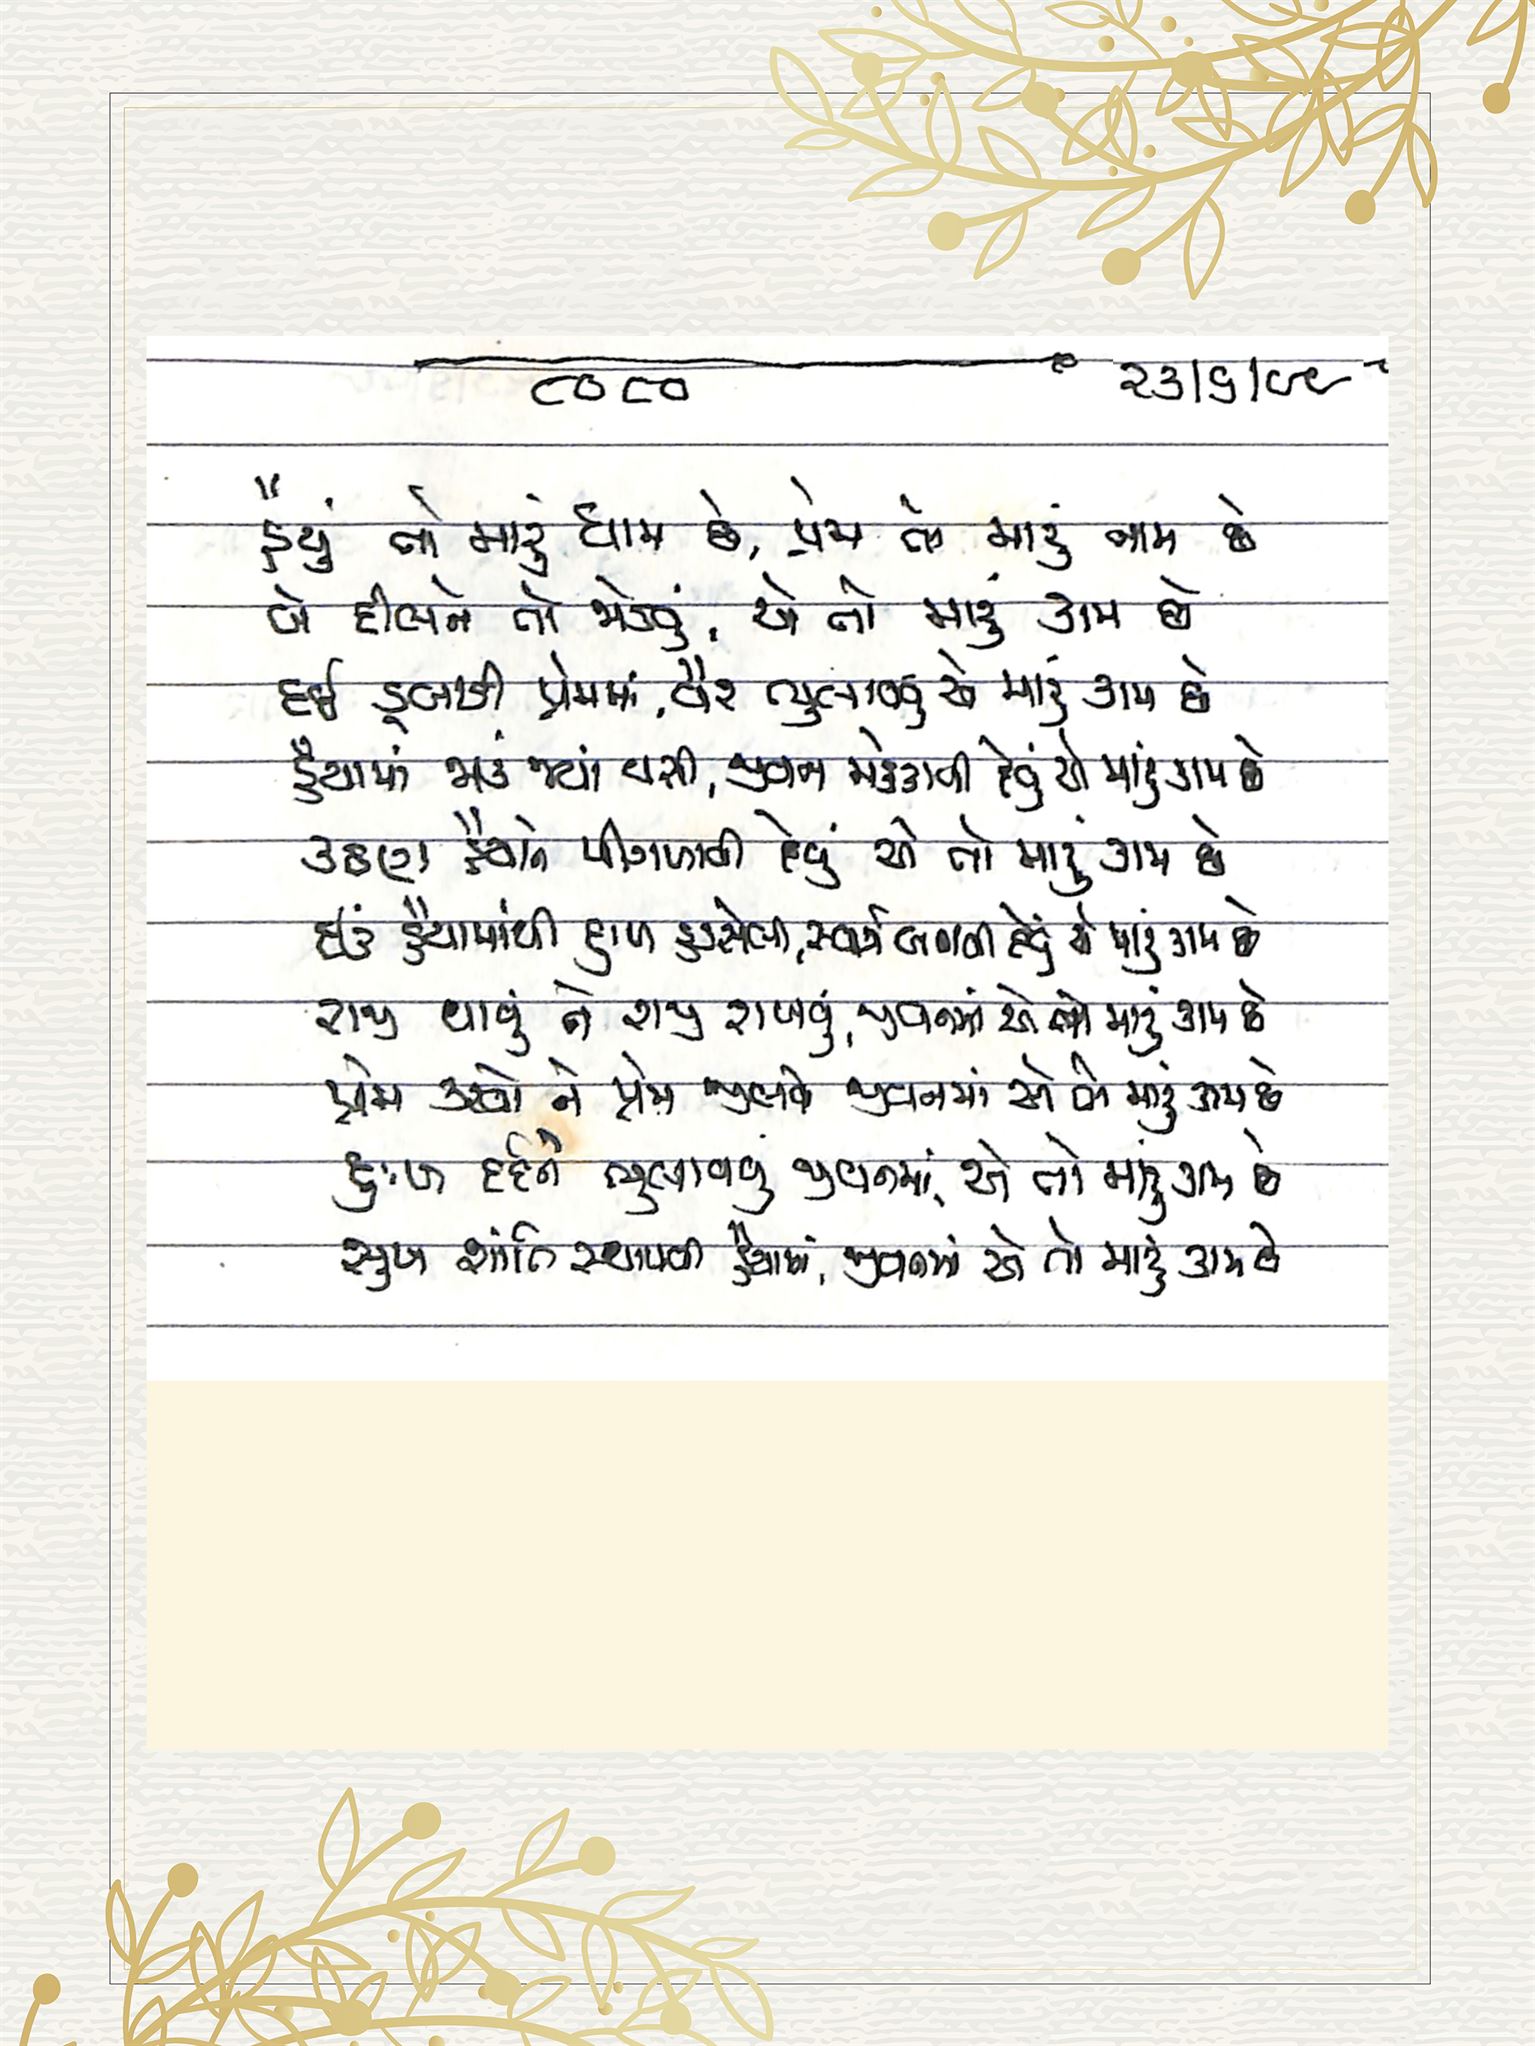 ૮૦૮૦
૨૩/૬/૯૯
હૈયું તો મારું ધામ છે, પ્રેમ તો મારું નામ છે
બે દીલને તો જોડવું, એ તો મારું કામ છે
દઈ ડૂબાડી પ્રેમમાં, વૈર ભુલાવવું એ મારું કામ છે
હૈયામાં જાઉં જ્યાં વસી, જીવન મહેકાવી દેવું એ મારું કામ છે
કઠણ હૈયાને પીગળાવી દેવું એ તો મારું કામ છે
દઉં હૈયામાંથી દુઃખ હડસેલી, સ્વર્ગ બનાવી દેવું એ મારું કામ છે
રાજી થાવું ને રાજી રાખવું, જીવનમાં એ તો મારું કામ છે
પ્રેમ કરવો ને પ્રેમ ઝીલવો જીવનમાં એ તો મારું કામ છે
દુઃખ દર્દને ભુલાવવું જીવનમાં, એ તો મારું કામ છે
સુખ શાંતિ સ્થાપવી હૈયામાં, જીવનમાં એ તો મારું કામ છે